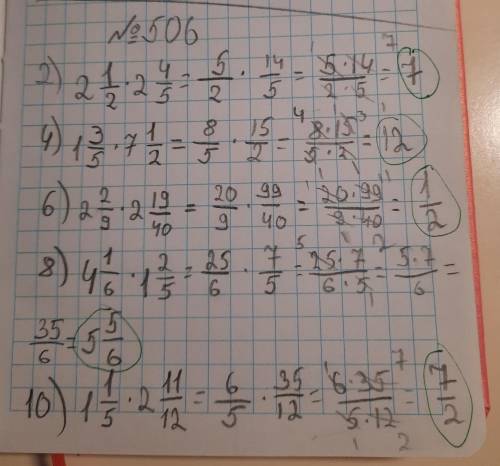 №506
2) 2 1/2 · 2 4/5 = 5/2 · 14/5 = 5·14/2·5 = 7
4) 1 3/5 · 7 1/2 = 8/5 · 15/2 = 8·15/5·2 = 12
6) 2 2/9 · 2 19/40 = 20/9 · 99/40 = 20·99/9·40 = 1/2
8) 4 1/6 · 1 2/5 = 25/6 · 7/5 = 25·7/6·5 = 5·7/6 =
35/6 = 5 5/6
10) 1 1/5 · 2 11/12 = 6/5 · 35/12 = 6·35/5·12 = 7/2